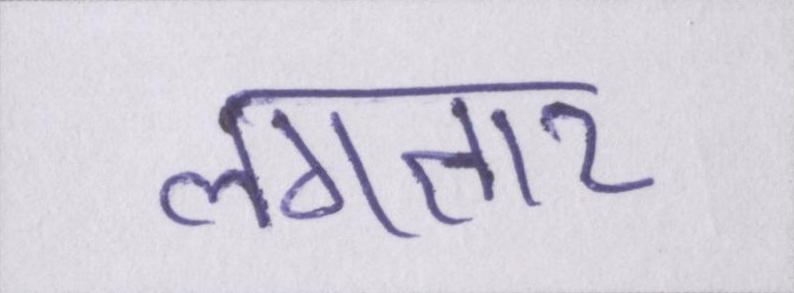 लगातार